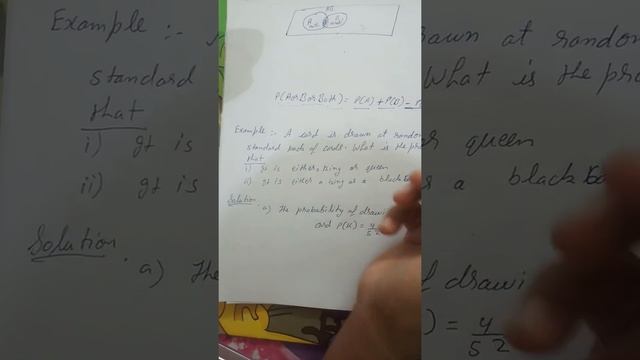 A∩B
A B
P(A or B or Both) = P(A) + P(B) -
Example :- A card is drawn at random
standard pack of cards. What is the pr
that
i) It is either, king or queen
ii) It is either a king or a black
Solution
a) The probability of drawi
card P(K) = 4/52